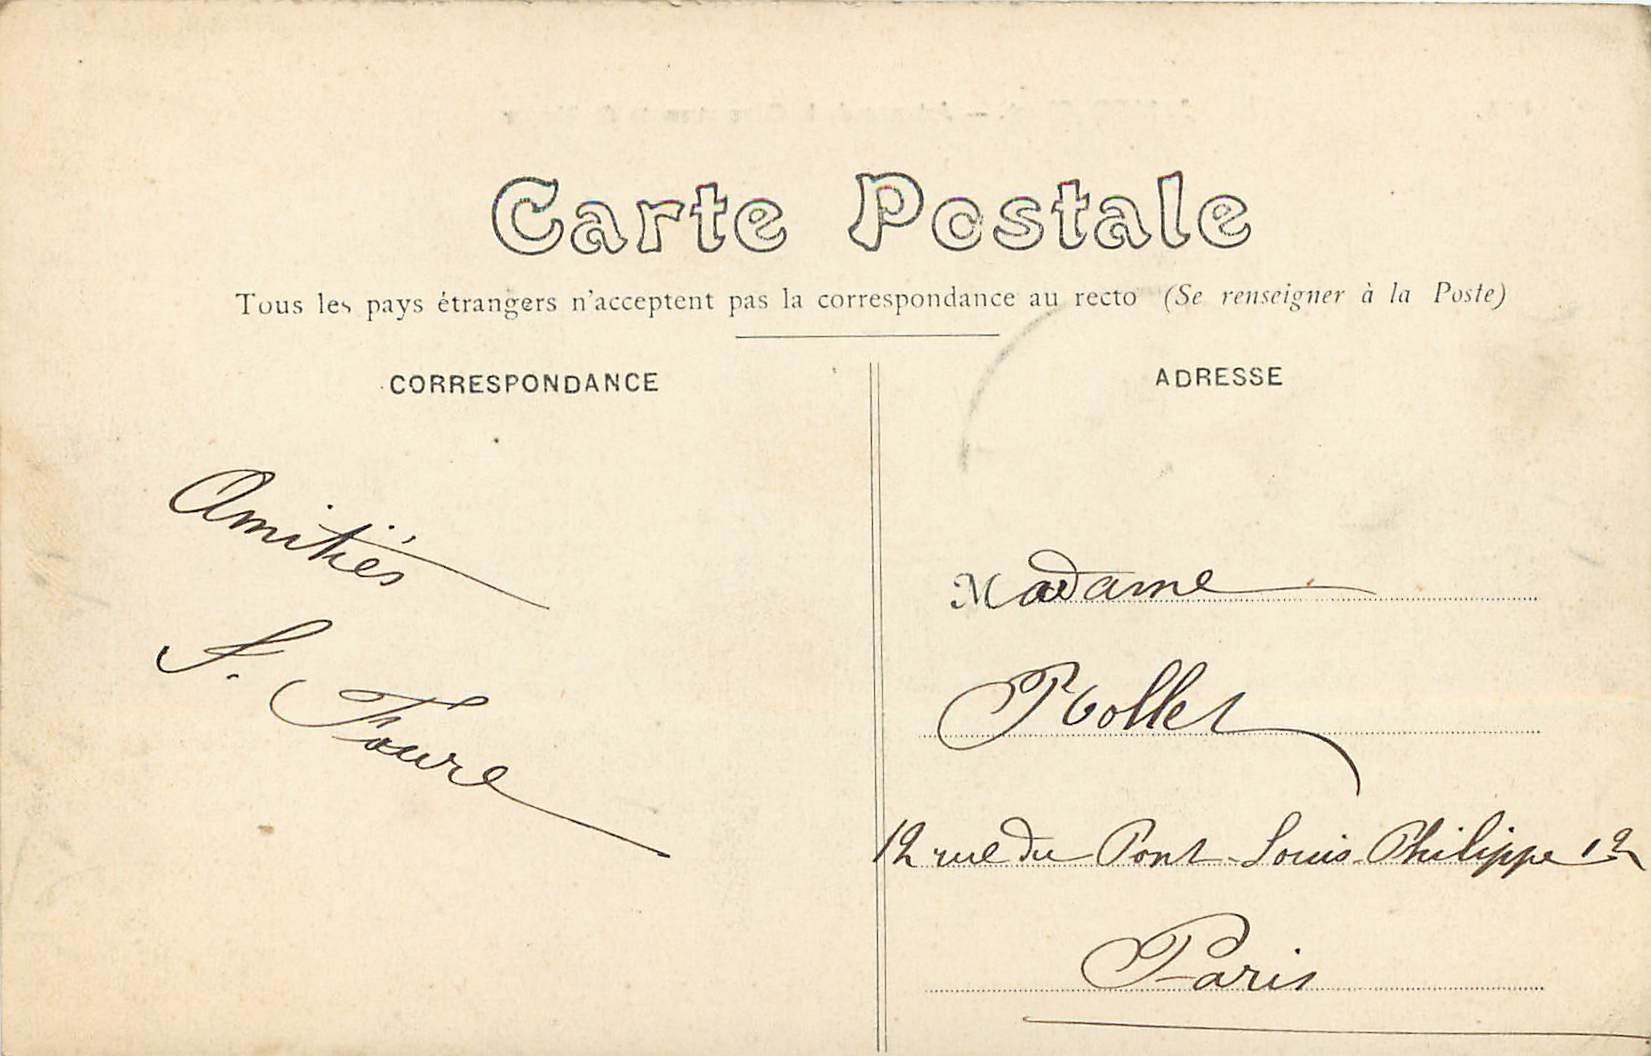 Carte Postale
Tous les pays étrangers n'acceptent pas la correspondance au recto (Se renseigner à la Poste)
CORRESPONDANCE
ADRESSE
Amitiés
S. Faure
Madame
Rollet
12 rue du Pont-Louis-Philippe 12
Paris